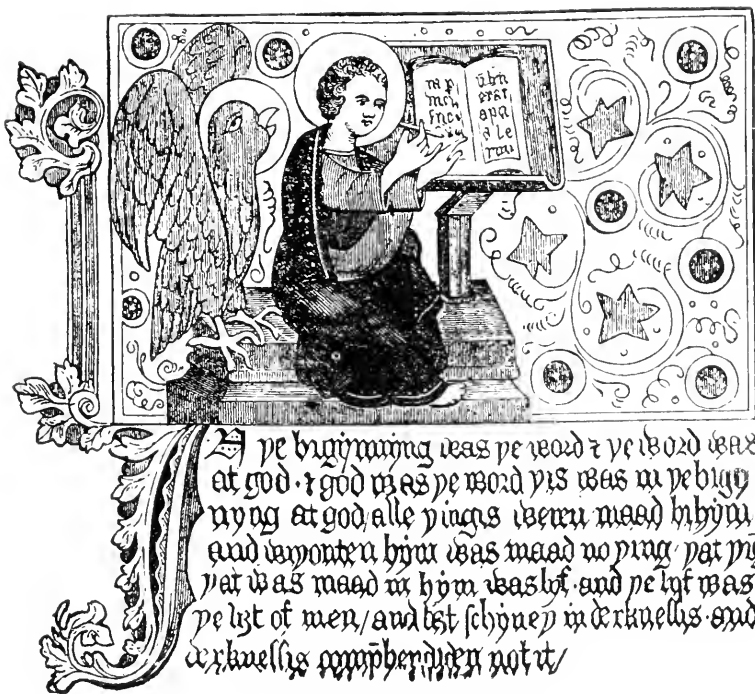 erat
In þe bigynnyng was þe word ⁊ þe word was
at god · ⁊ god was þe word þis was in þe bigyn
nyng at god/ alle þingis weren maad bi hym
and wiþouten hym was maad no þing · þat
þat was maad in hym was lyf · and þe lyf was
þe liȝt of men/ and liȝt schyneþ in derknessis · and
derknessis comp̄hendiden not it/